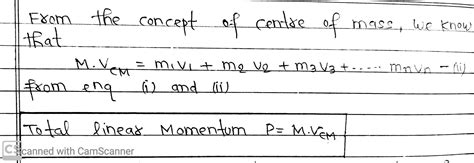 From the concept of centre of mass, we know
that
M.VCM = m1v1 + m2 v2 + m3v3 + ..... mnvn - (ii)
from enq (i) and (ii)
Total linear Momentum P = M.VCM
CS canned with CamScanner